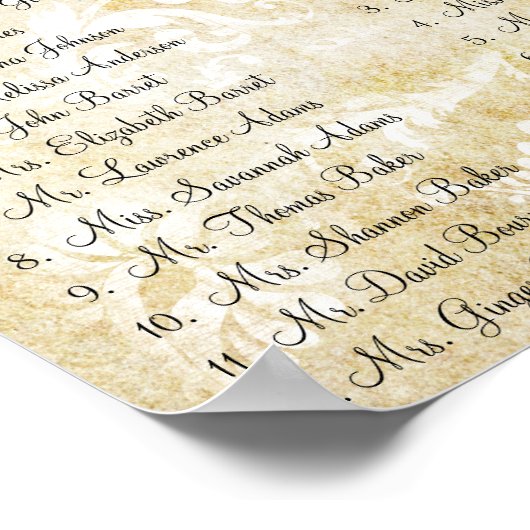 na Johnson
elissa Anderson
John Barret
Mrs. Elizabeth Barret
Mr. Lawrence Adams
8. Miss. Savannah Adams
9. Mr. Thomas Baker
10. Mrs. Shannon Baker
11. Mr. David Bow
Mrs. Ginge
3.
4. Miss
5. M